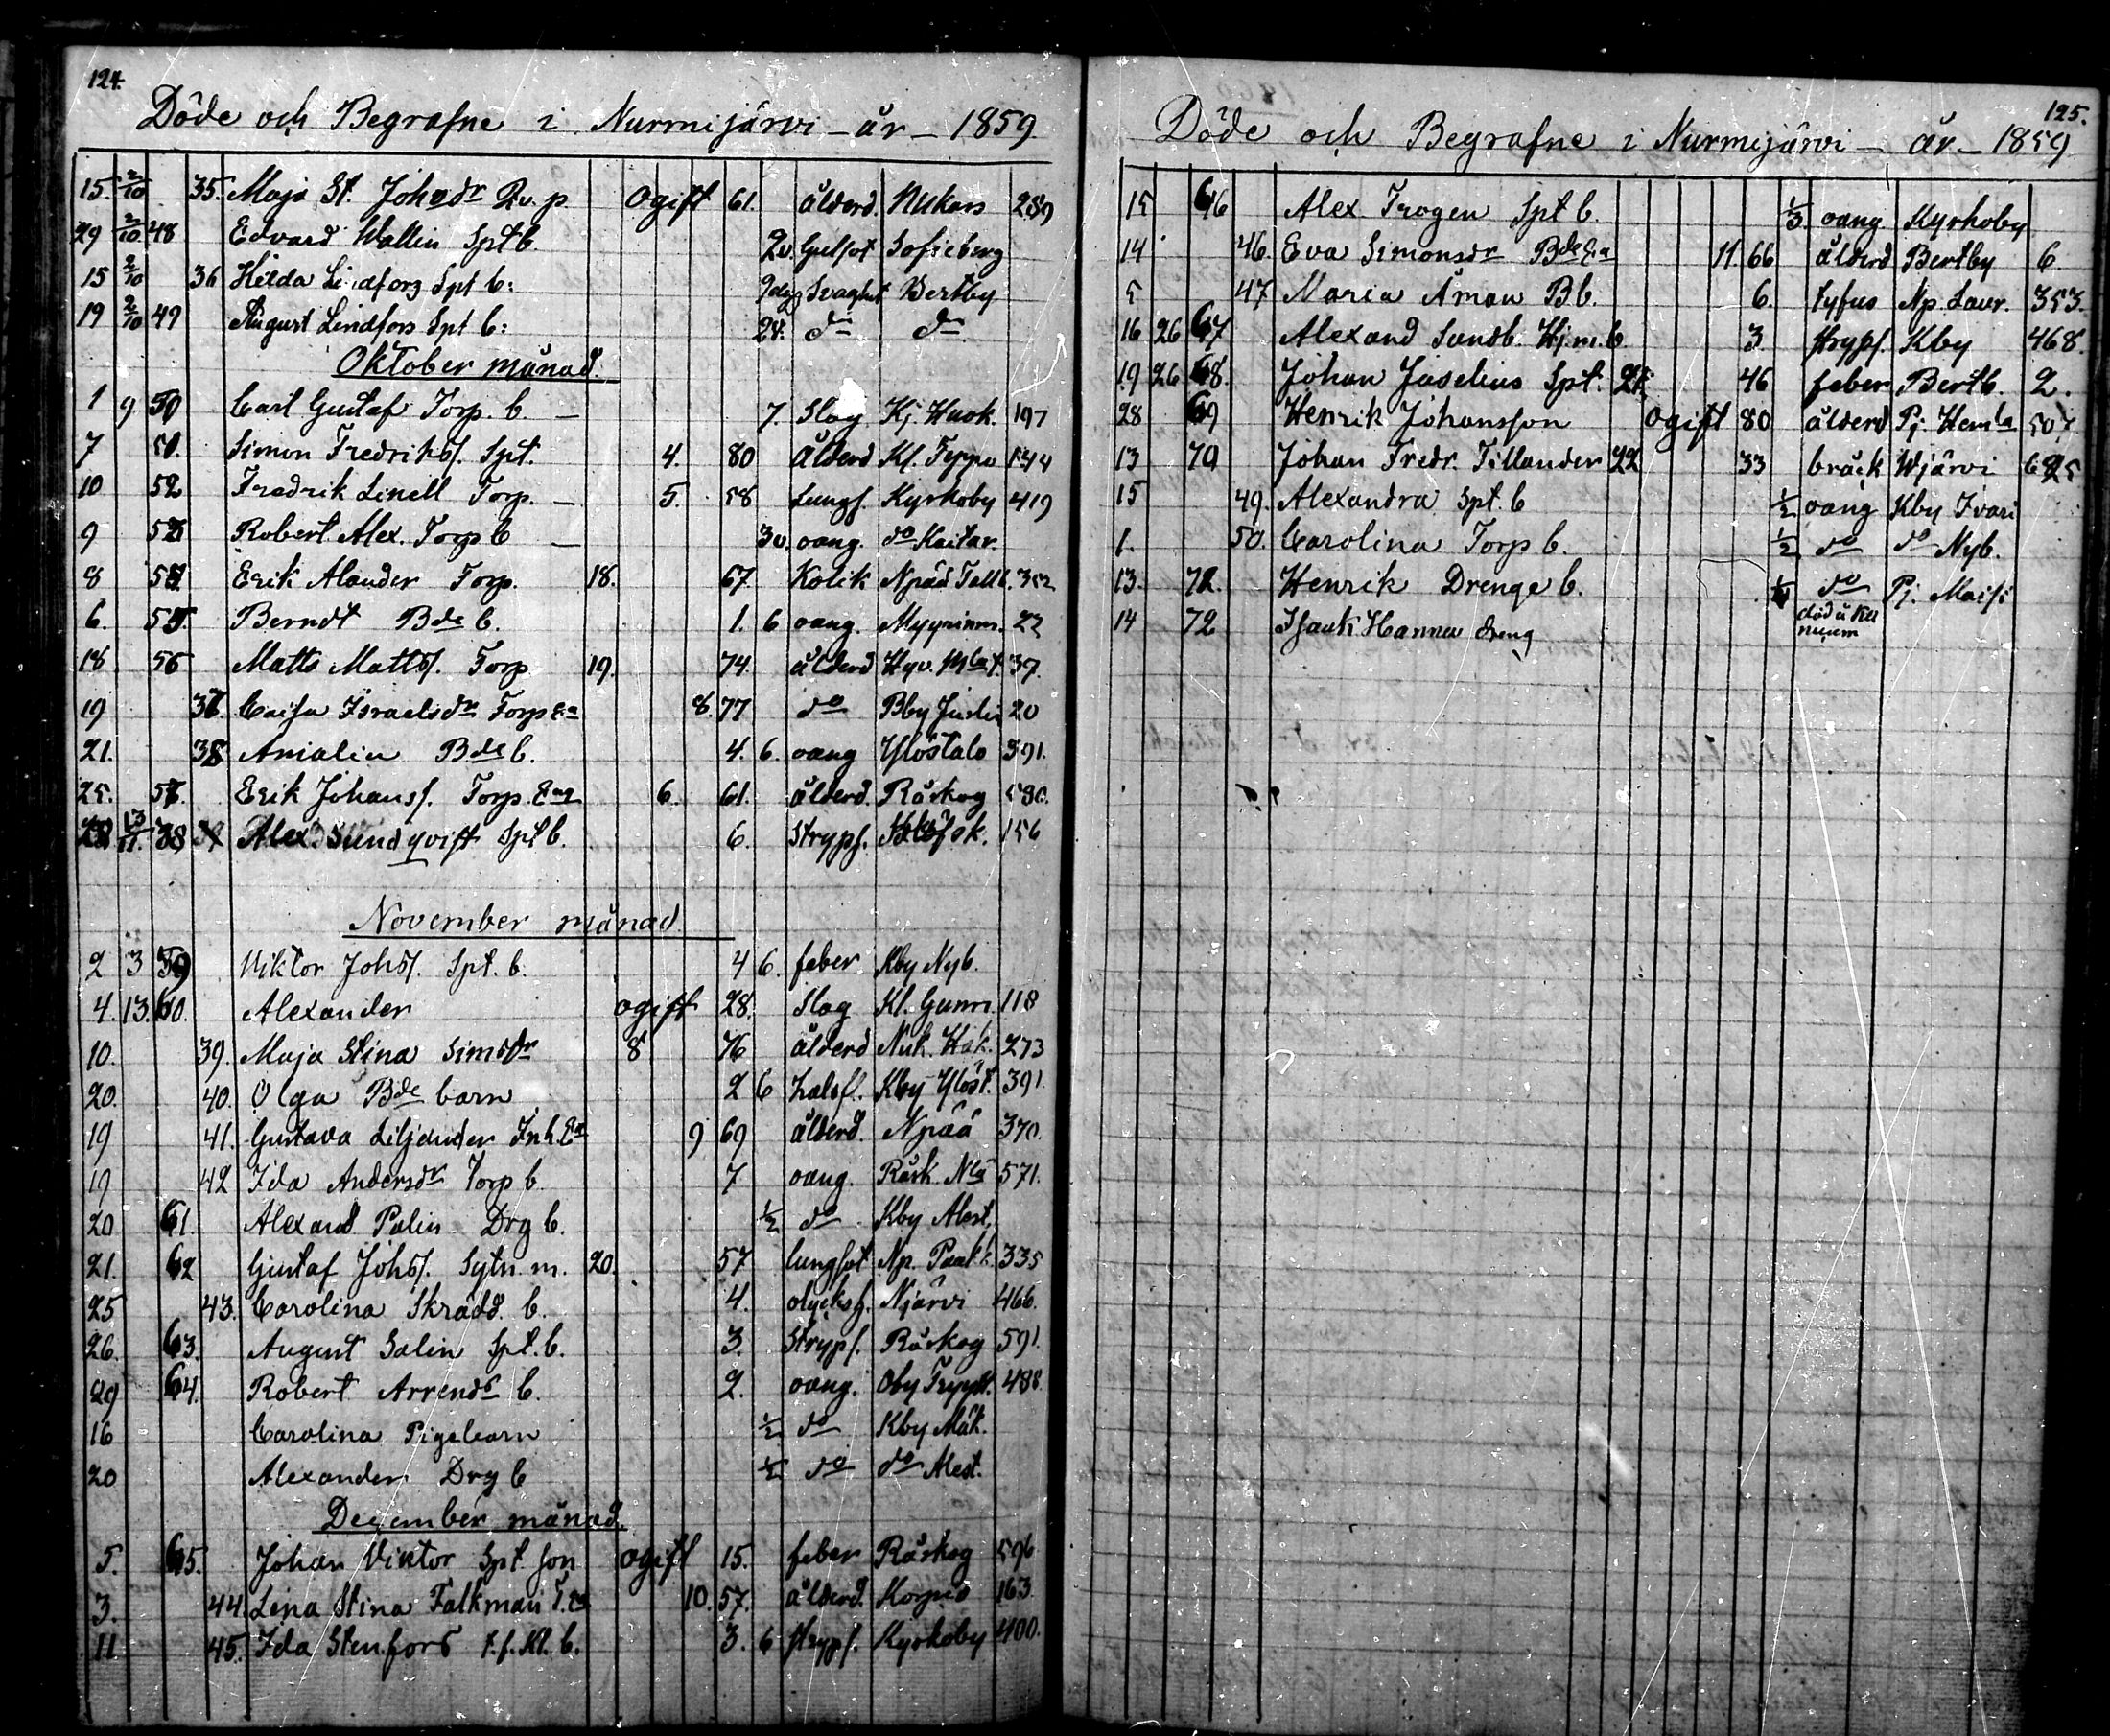 124.
Döde och Begrafne i Nurmijärvi - år - 1859
15. 2/10 35. Maja St. Johsdr Qv. p. Ogift 61. ålderd. Nukars 289
29 2/10 48 Edvard Wallin Spt b. 2v. Gulsot Sofieberg
15 2/10 36 Hilda Lindfors Spt b: Svaghet Bertby
19 2/10 49 August Lindfors Spt b: 24. do do
Oktober månad.
1 9 50 Carl Gustaf Torp. b. — 7. Slag Kj. Huok. 197
7 51. Simon Fredrikss. Spt. 4. 80 Ålderd Kl. Teppo 144
10 52 Fredrik Linell Torp. — 5. 58 Lungs. Kyrkoby 419
9 53 Robert Alex. Torp b — 3v. oang. do Kaitar.
8 54 Erik Alander Torp. 18. 67. Kolik Npää Tallb. 352
6. 55. Berndt Bde b. 1. 6 oang. Myyrinm. 22
18 56 Matts Matts. Torp 19. 74. ålderd Hyv. 37.
19 37. Caisa Israelsdr Torp Ea 8. 77 do Bby Juslin 20
21. 38 Amalia Bde b. 4. 6. oang Ylöstalo 391.
25. 57. Erik Johanss. Torp. Eng 6. 61. ålderd. Råskog 580.
28 13/11. 58 Alex. Sundqvist Spt b. 6. Stryps. 156
November månad
2 3 59 Viktor Johss. Spt. b. 4 6. feber Kby Nyb.
4. 13. 60. Alexander ogift 28. Slag Kl. Gunni 118
10. 39. Maja Stina Simsdr 8 76 ålderd Nuk. Hak. 273
20. 40. Olga Bde barn 2 6 halsfl. Kby Ylöst. 391
19 41. Gustava Liljander Inh. Ea 9 69 ålderd. Npää 370.
19 42 Ida Andersdr Torp b. 7 oang. Råsk. 571.
20 61. Alexand Palin Drg b. 1/2 do Kby Alest.
21. 62 Gustaf Johss. Sytn. m. 20. 57 lungsot Np. Paakk. 335
25 43. Carolina Skradd. b. 4. olycksh. Njärvi 466.
26. 63. August Salin Spt. b. 3. Stryps. Råskog 591.
29 64. Robert Arrendr b. 2. oang. Oby 488
16 Carolina Pigebarn 1/2 do Kby Mäk.
20 Alexander Drg b 1/2 do do Alest.
December månad.
5. 65. Johan Viktor Spt. son ogift 15. feber Råskog 596
3. 44. Lena Stina Falkman T. Ea 10. 57. ålderd. Korpio 163
11 45. Ida Stenfors f. f. Kl. b. 3. 6 strypf. Kyrkoby 400.
125.
Döde och Begrafne i Nurmijärvi - år - 1859
15 66 Alex. Trogen Spt b. 1/3 oang Kyrkoby
14 46. Eva Simonsdr Bde Ea 11. 66 ålderd Bertby 6.
5 47 Maria Åman B b. 6. tyfus Np. Laur. 353.
16 26 67 Alexand Sundb. Hj. m. b. 3. strypf. Kby 468.
19 26 68. Johan Juselius Spt. 46 feber Bertb. 2.
28 69 Henrik Johansson ogift 80 ålderd Pj. Hemla 507
13 70 Johan Fredr. Tillander 22 33 bråck Wjärvi 625
15 49. Alexandra Spt. b 1/2 oang Kby Ivari
1. 50. Carolina Torp b. 1/2 do do Nyb.
13. 72. Henrik Drenge b. do Pj. Maisi
14 72 Isaak Hannu dreng död å